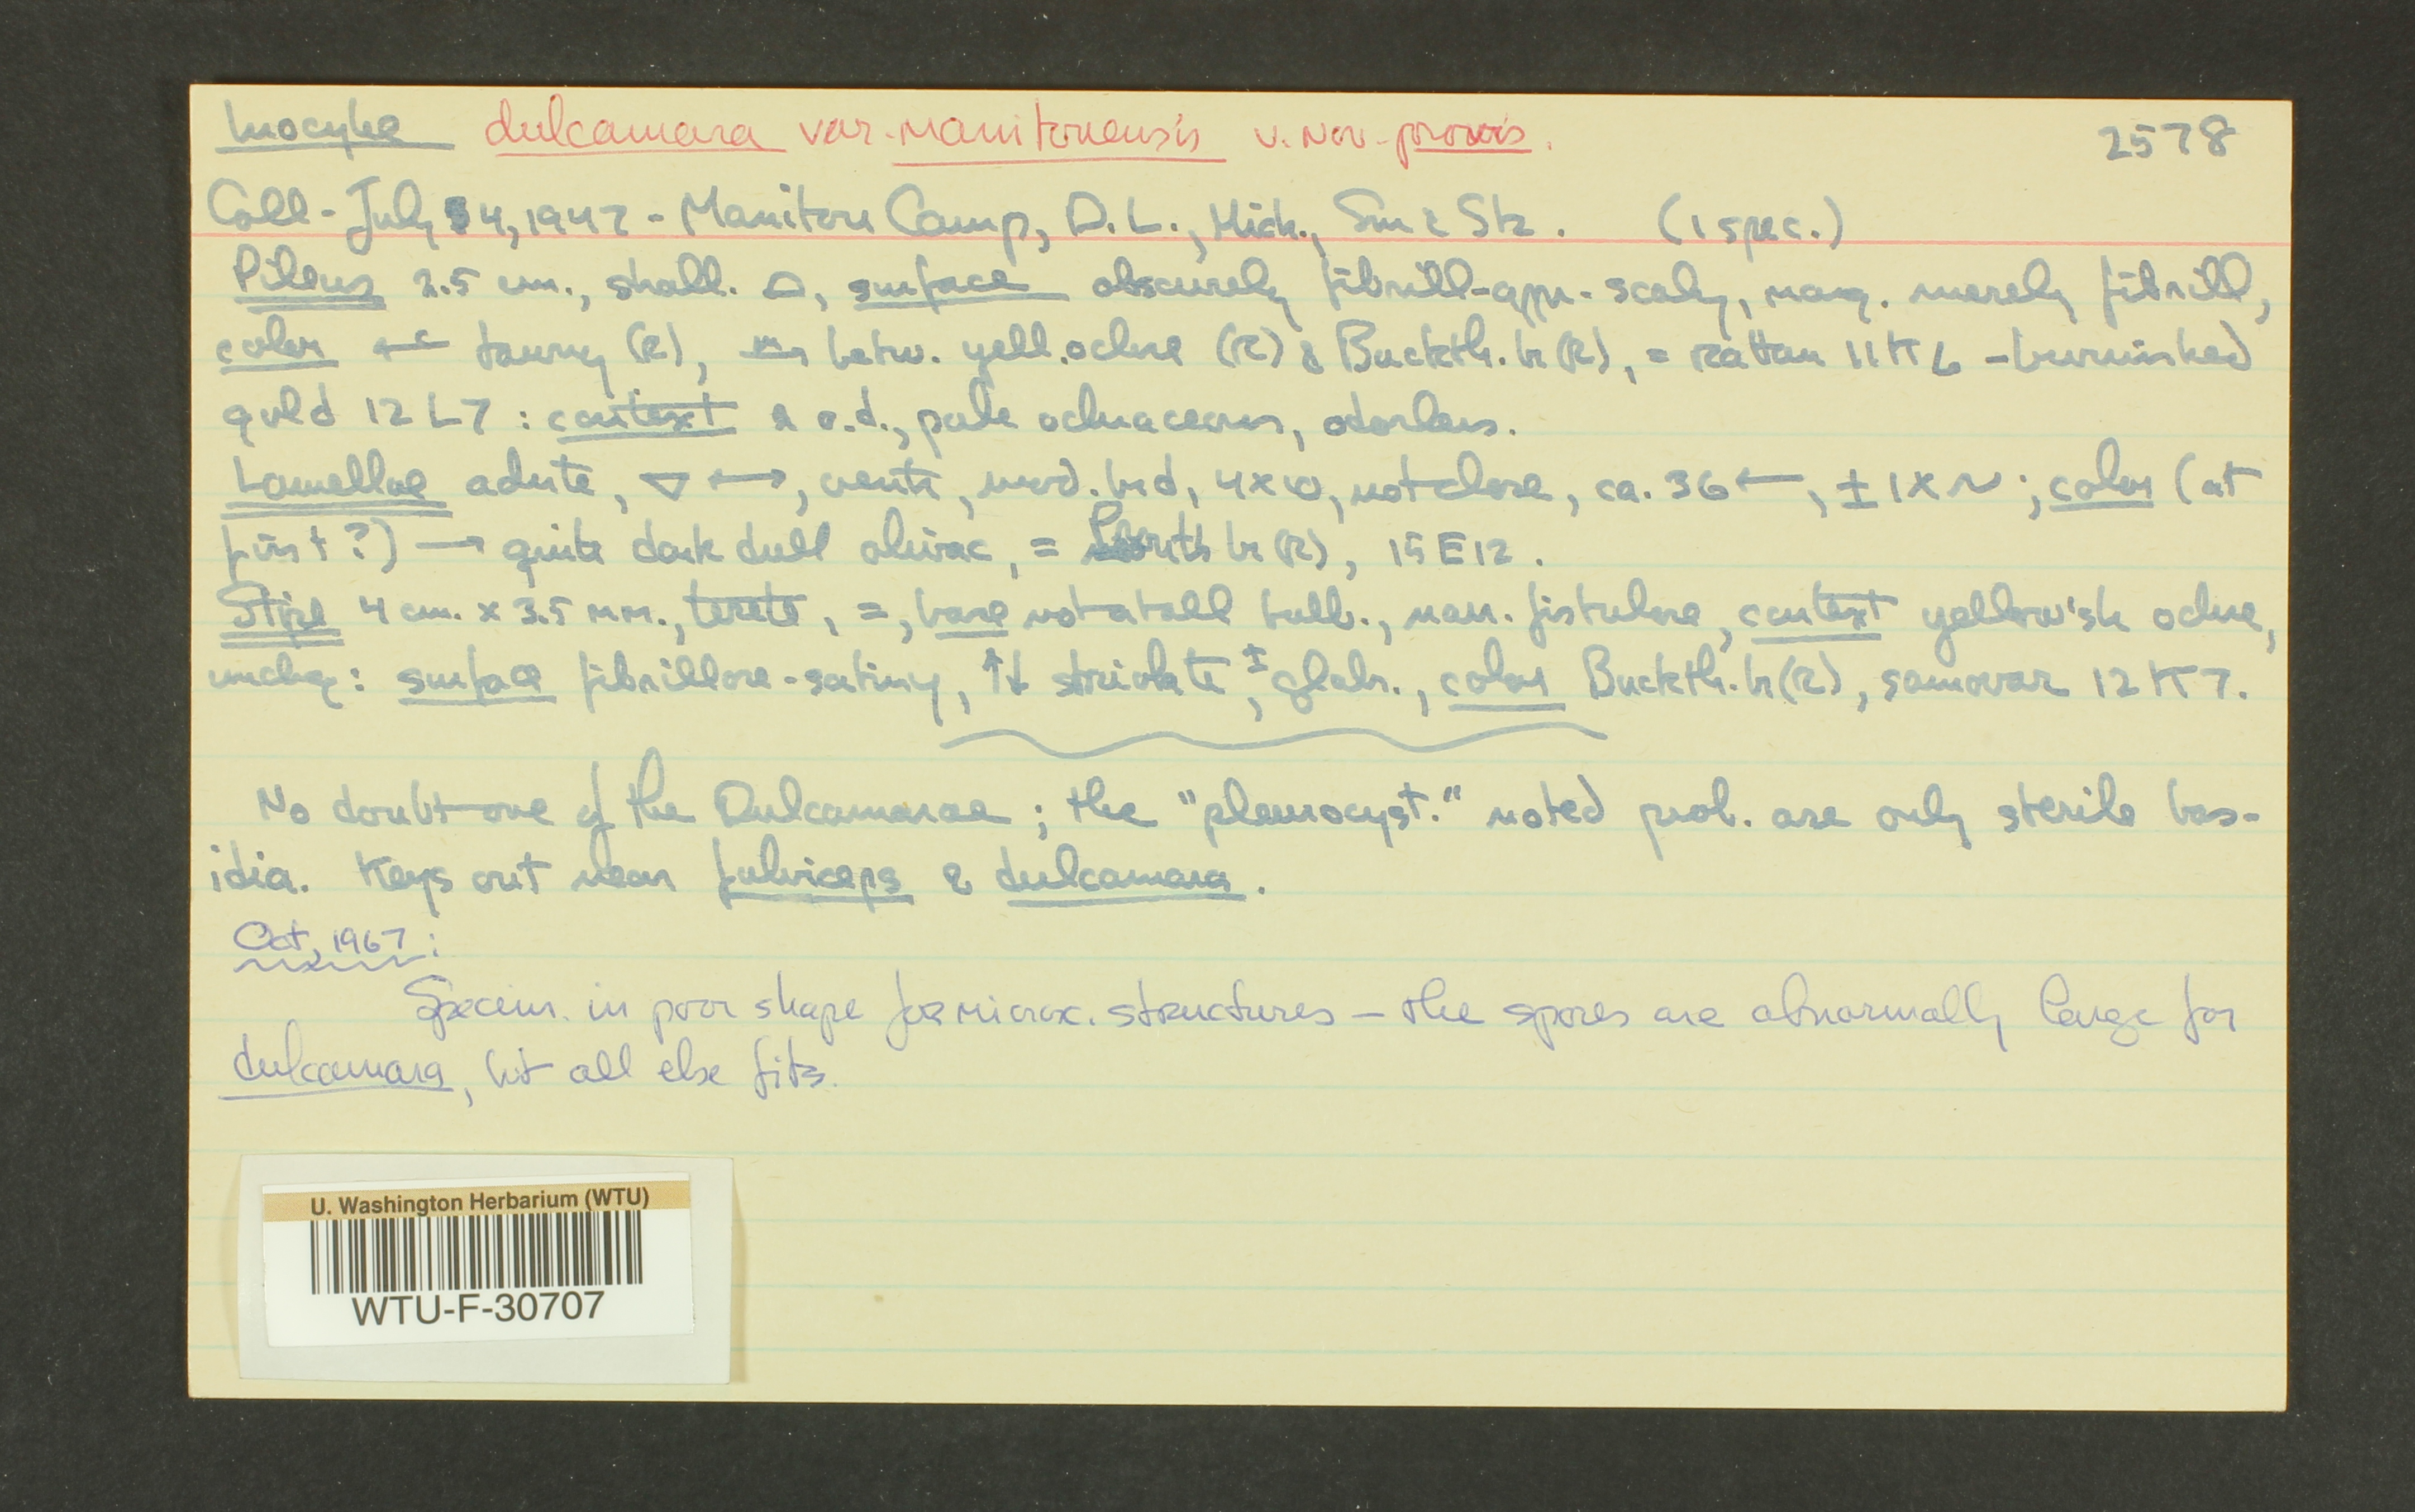 Inocybe dulcamara var. manitouensis v. nov. provis. 2578
Coll - July 4, 1947 - Manitou Camp, D.L., Mich., Sm & Stz. (1 spec.)
Pileus 2.5 cm., shall. ⌓, surface obscurely fibrill-appr.-scaly, marg. merely fibrill,
color ← tawny (R), betw. yell. ochre (R) & Buckth. br (R), = Rattan 11K6 - burnished
gold 12L7 : context o.d., pale ochraceous, odorless.
Lamellae adnte, ▽ ⟷, ventr, mod. brd, 4x10, not close, ca. 36 ←, ± 1x ~ ; color (at
first?) → quite dark dull olivac, = Prouts br (R), 15E12.
Stipe 4 cm. x 3.5 mm., terete, =, base not at all bulb., narr. fistulose, context yellow'sh ochre,
unchg: surface fibrillose-satiny, ↑↓ striolate, ± glabr., color Buckth. br (R), samovar 12K7.
No doubt one of the Dulcamarae ; the "pleurocyst." noted prob. are only sterile bas-
idia. Keys out near fulviceps & dulcamara.
Oct, 1967 :
Specim. in poor shape for microx. structures - the spores are abnormally large for
dulcamara, bt all else fits.
U. Washington Herbarium (WTU)
WTU-F-30707